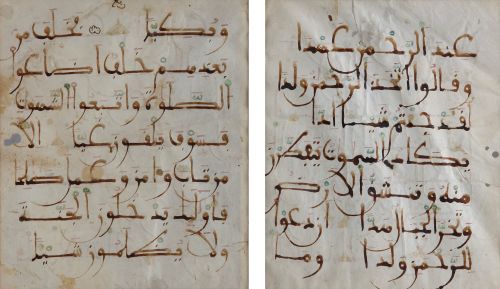 وبكيا فخلف من
بعدهم خلف اضاعوا
الصلوة واتبعوا الشهوت
فسوف يلقون غيا الا
من تاب وامن وعمل صلحا
فاولىك يدخلون الجنة
ولا يظلمون شيا
عند الرحمن عهدا
وقالوا اتخذ الرحمن ولدا
لقد جيتم شيا ادا
يكاد السموت يتفطرن
منه وتنشق الارض
وتخر الجبال هدا ان دعوا
للرحمن ولدا وما